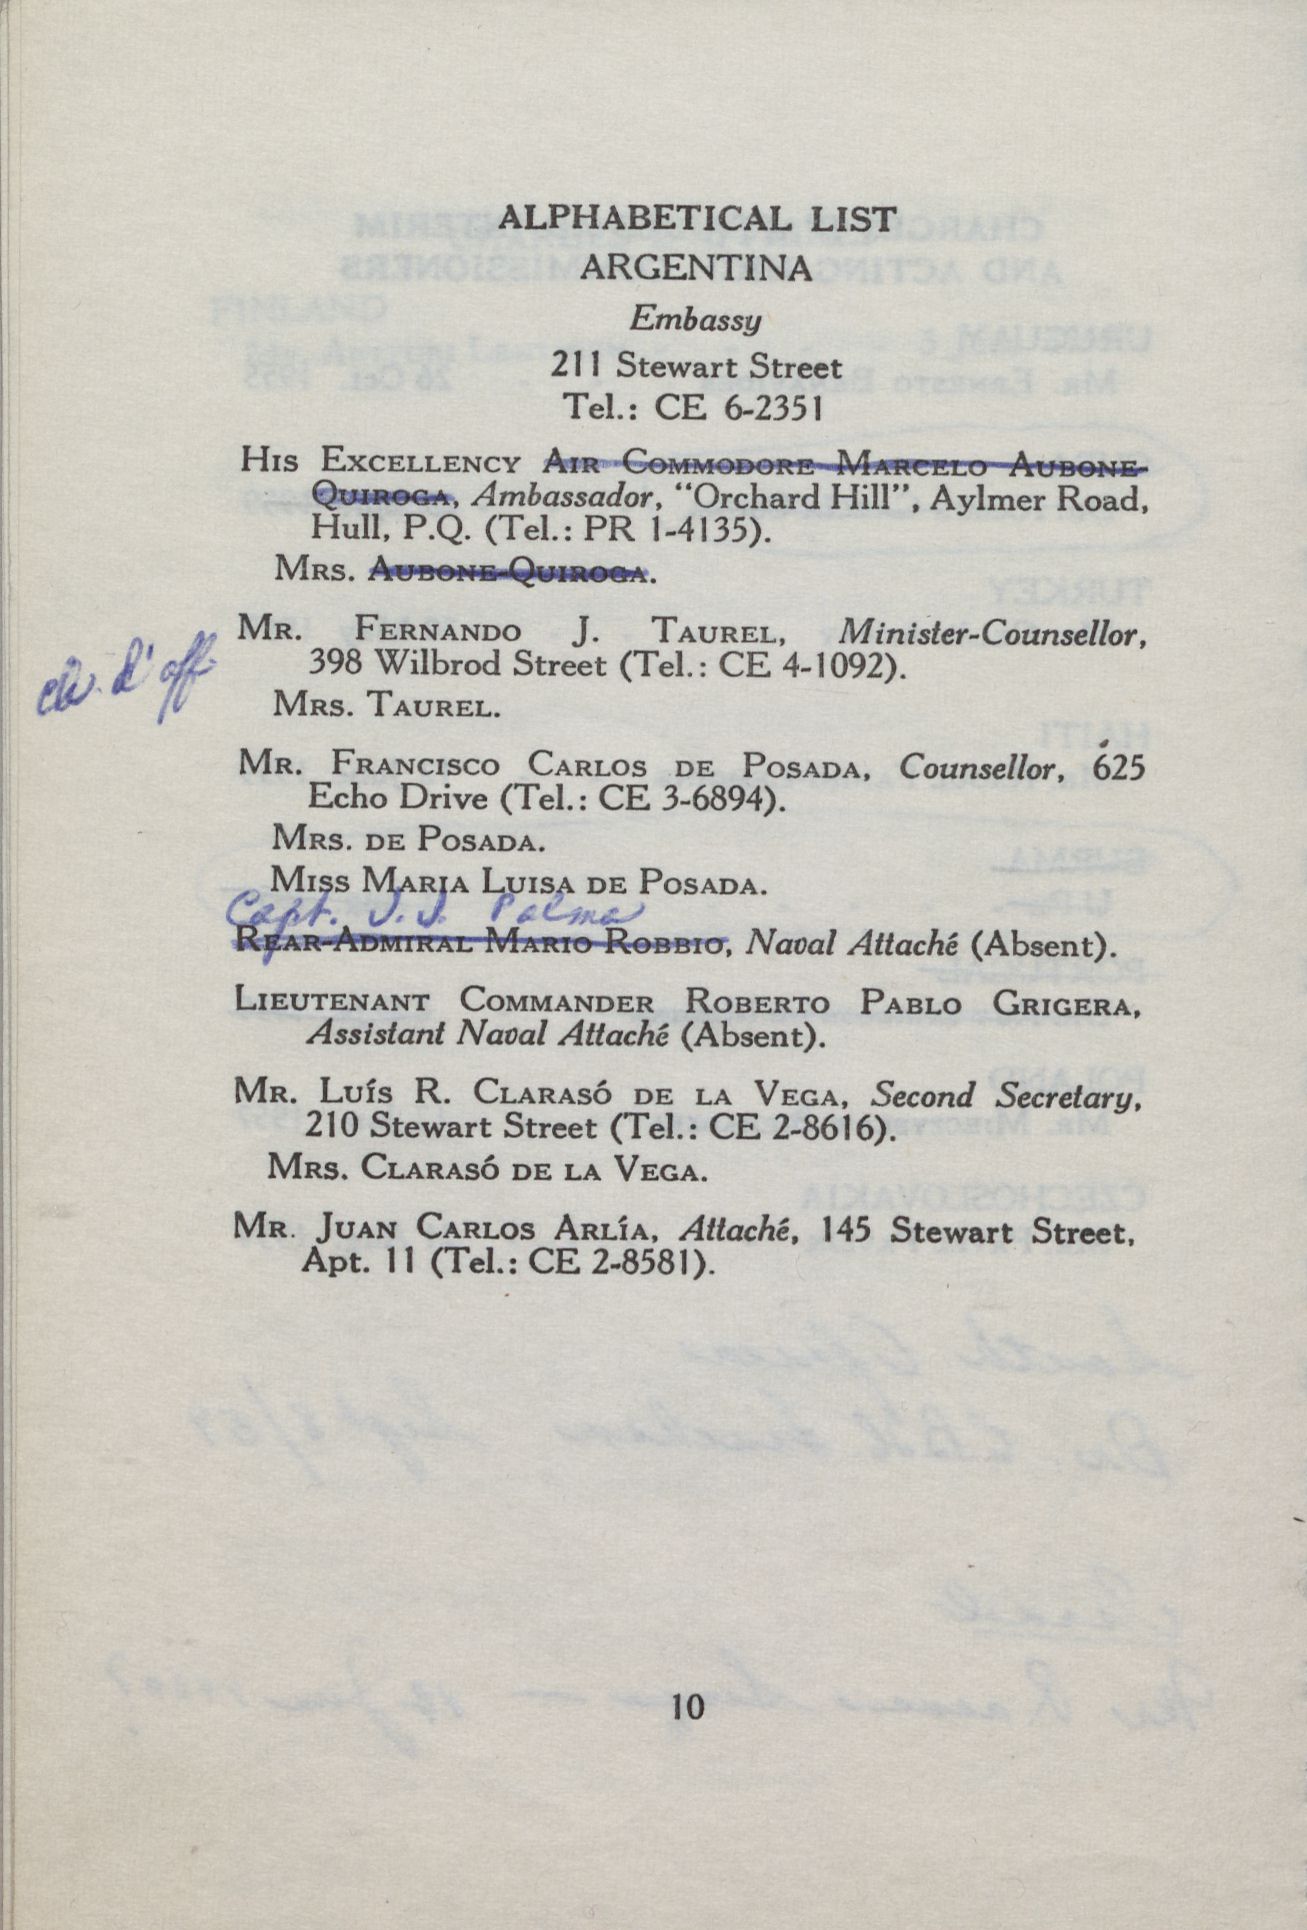 ALPHABETICAL LIST
ARGENTINA
Embassy
211 Stewart Street
Tel.: CE 6-2351
His Excellency Air Commodore Marcelo Aubone-
Quiroga, Ambassador, “Orchard Hill”, Aylmer Road,
Hull, P.Q. (Tel.: PR 1-4135).
Mrs. Aubone-Quiroga.
Mr. Fernando J. Taurel, Minister-Counsellor,
ch. d'aff.
398 Wilbrod Street (Tel.: CE 4-1092).
Mrs. Taurel.
Mr. Francisco Carlos de Posada, Counsellor, 625
Echo Drive (Tel.: CE 3-6894).
Mrs. de Posada.
Miss Maria Luisa de Posada.
Capt. J. J. Palma
Rear-Admiral Mario Robbio, Naval Attaché (Absent).
Lieutenant Commander Roberto Pablo Grigera,
Assistant Naval Attaché (Absent).
Mr. Luís R. Clarasó de la Vega, Second Secretary,
210 Stewart Street (Tel.: CE 2-8616).
Mrs. Clarasó de la Vega.
Mr. Juan Carlos Arlía, Attaché, 145 Stewart Street,
Apt. 11 (Tel.: CE 2-8581).
10